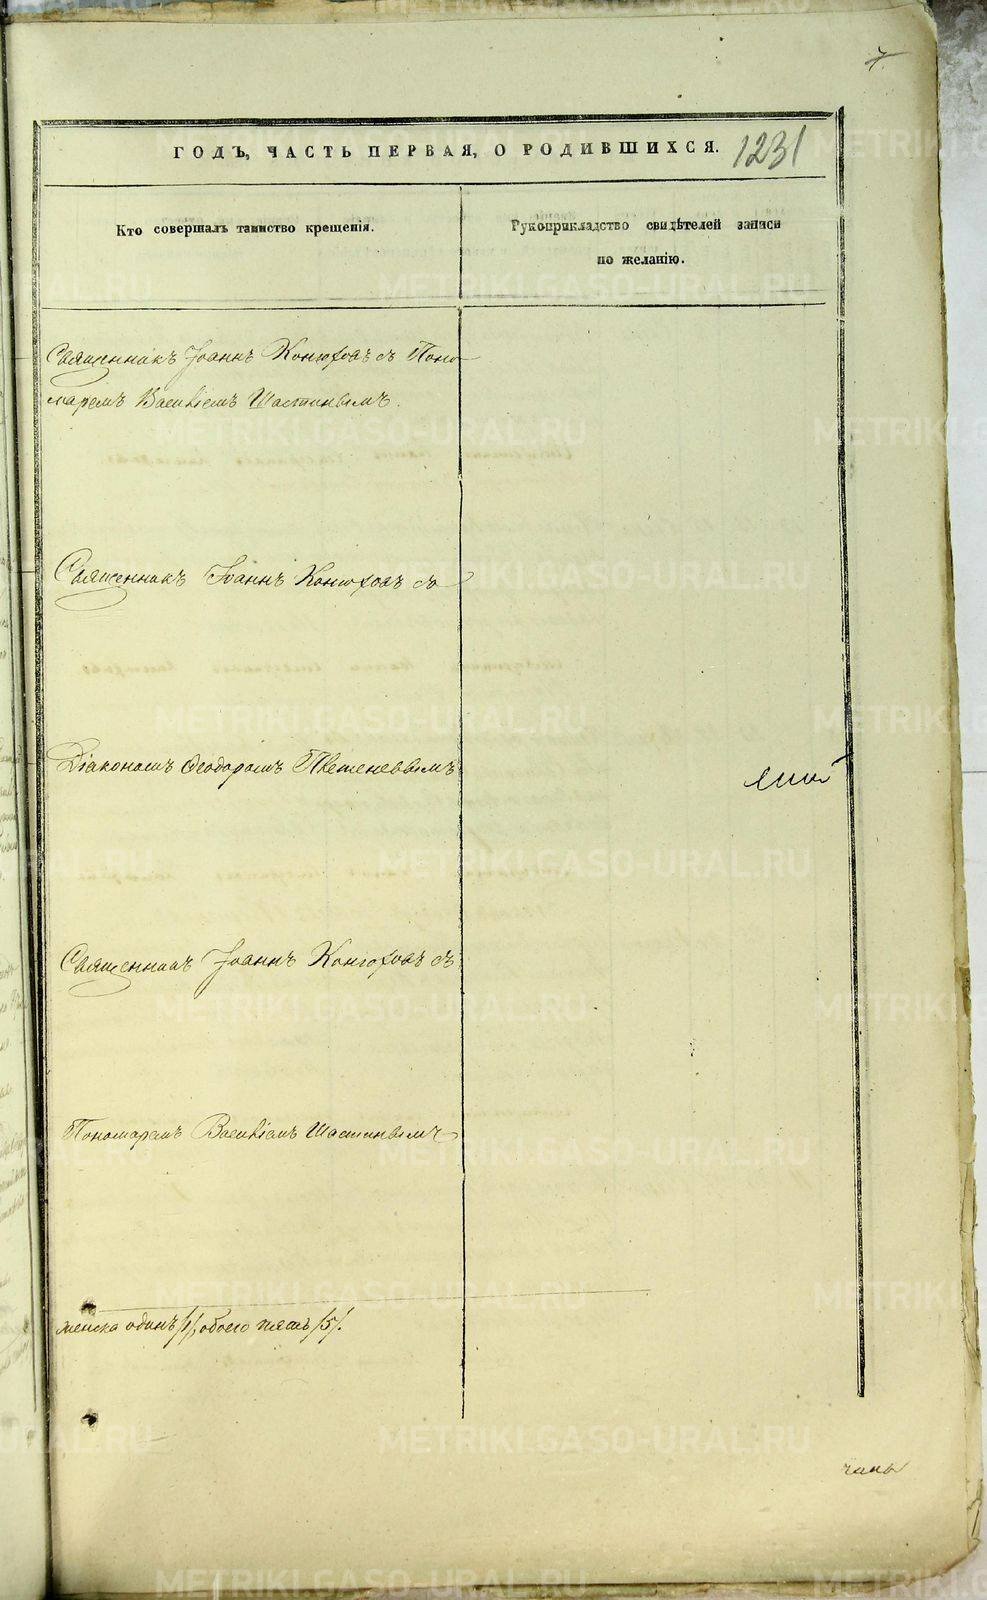 7
ГОДЪ, ЧАСТЬ ПЕРВАЯ, О РОДИВШИХСЯ. 1231
Кто совершалъ таинство крещенія.
Рукоприкладство свидѣтелей записи
по желанію.
Священникъ Іоаннъ Конюховъ съ Поно-
маремъ Василіемъ Шастинымъ.
Священникъ Іоаннъ Конюховъ съ
Діакономъ Ѳеодоромъ
Священникъ Іоаннъ Конюховъ съ
Пономаремъ Василіемъ Шастинымъ
женска одинъ /1/, обоего пять /5/.
METRIKI.GASO-URAL.RU